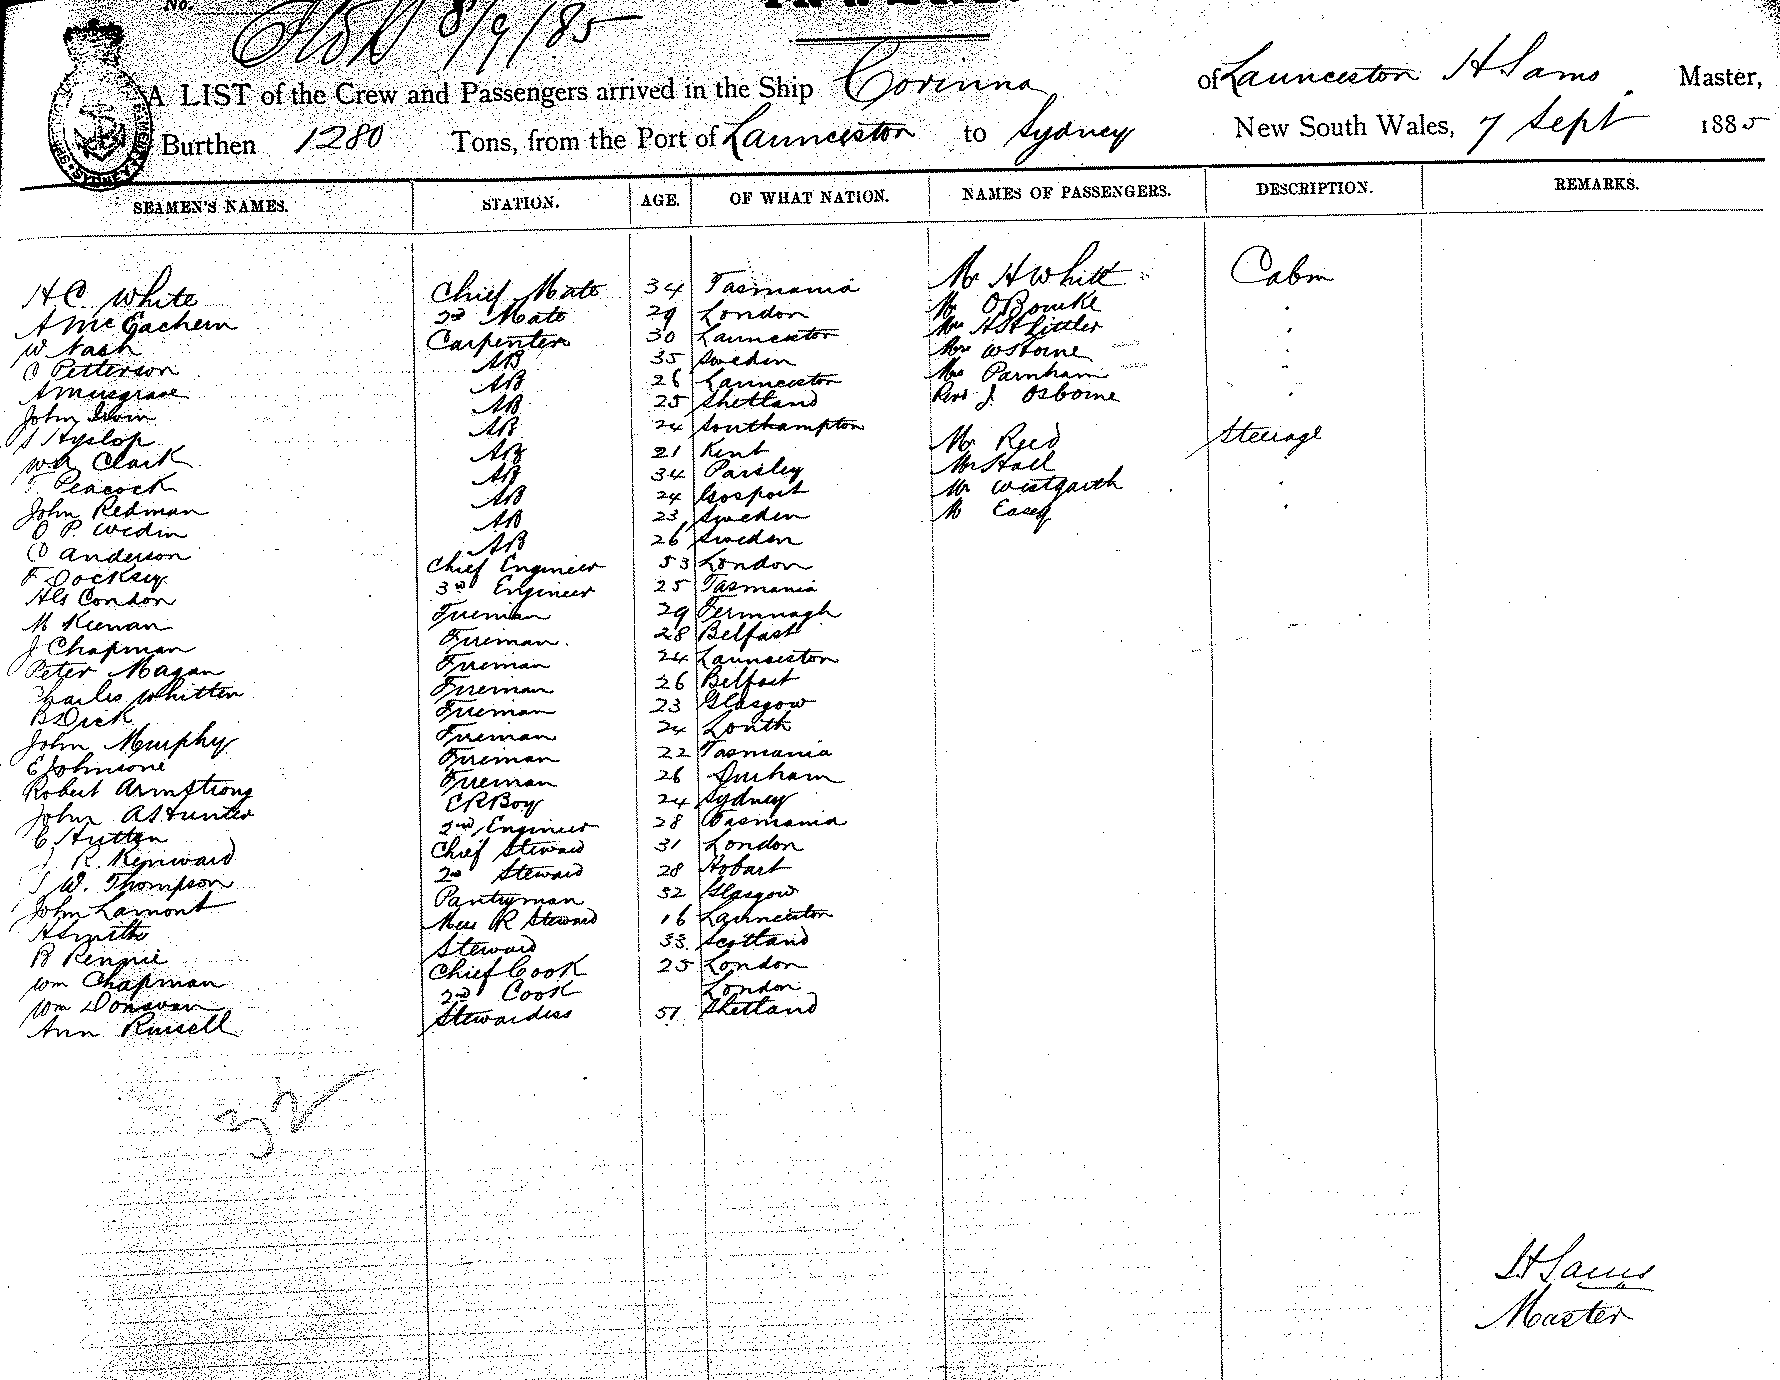 No.
8/9/85
A LIST of the Crew and Passengers arrived in the Ship Corinna of Launceston H Sams Master,
Burthen 1280 Tons, from the Port of Launceston to Sydney New South Wales, 7 Sept 1885
SEAMEN'S NAMES. STATION. AGE. OF WHAT NATION. NAMES OF PASSENGERS. DESCRIPTION. REMARKS.
H C White Chief Mate 34 Tasmania Mr H Whitt Cabin
A McEachern 2nd Mate 29 London Mr O'Bourke
W Nash Carpenter 30 Launceston Mrs A St Littler
C Petterson AB 35 Sweden Mrs Osborne
A Musgrave AB 26 Launceston Mrs Parnham
John Irvin AB 25 Shetland Revd J. Osborne
J Hyslop AB 24 Southampton
Wm Clark AB 21 Kent Mr Reed Steerage
T Peacock AB 34 Parsley Mr Hall
John Redman AB 24 Gosport Mr Westgarth
O P. Wedin AB 23 Sweden M Easey
C Anderson AB 26 Sweden
F Docksey Chief Engineer 53 London
Condon 3rd Engineer 25 Tasmania
M Kienan Fireman 29 Fermnagh
J Chapman Fireman 28 Belfast
Peter Magan Fireman 24 Launceston
Charles Whitten Fireman 26 Belfast
B Dick Fireman 23 Glasgow
John Murphy Fireman 24 Louth
E Johnsone Fireman 22 Tasmania
Robert Armstrong Fireman 26 Durham
John A S Hunter ER Boy 24 Sydney
C Hutton 2nd Engineer 28 Tasmania
J. R. Kenward Chief Steward 31 London
J W. Thompson 2nd Steward 28 Hobart
John Lamont Pantryman 32 Glasgow
H Smith Mess R Steward 16 Launceston
R Rennie Steward 33 Scotland
Wm Chapman Chief Cook 25 London
Wm Donovan 2nd Cook London
Ann Russell Stewardess 51 Shetland
32
H Sams
Master